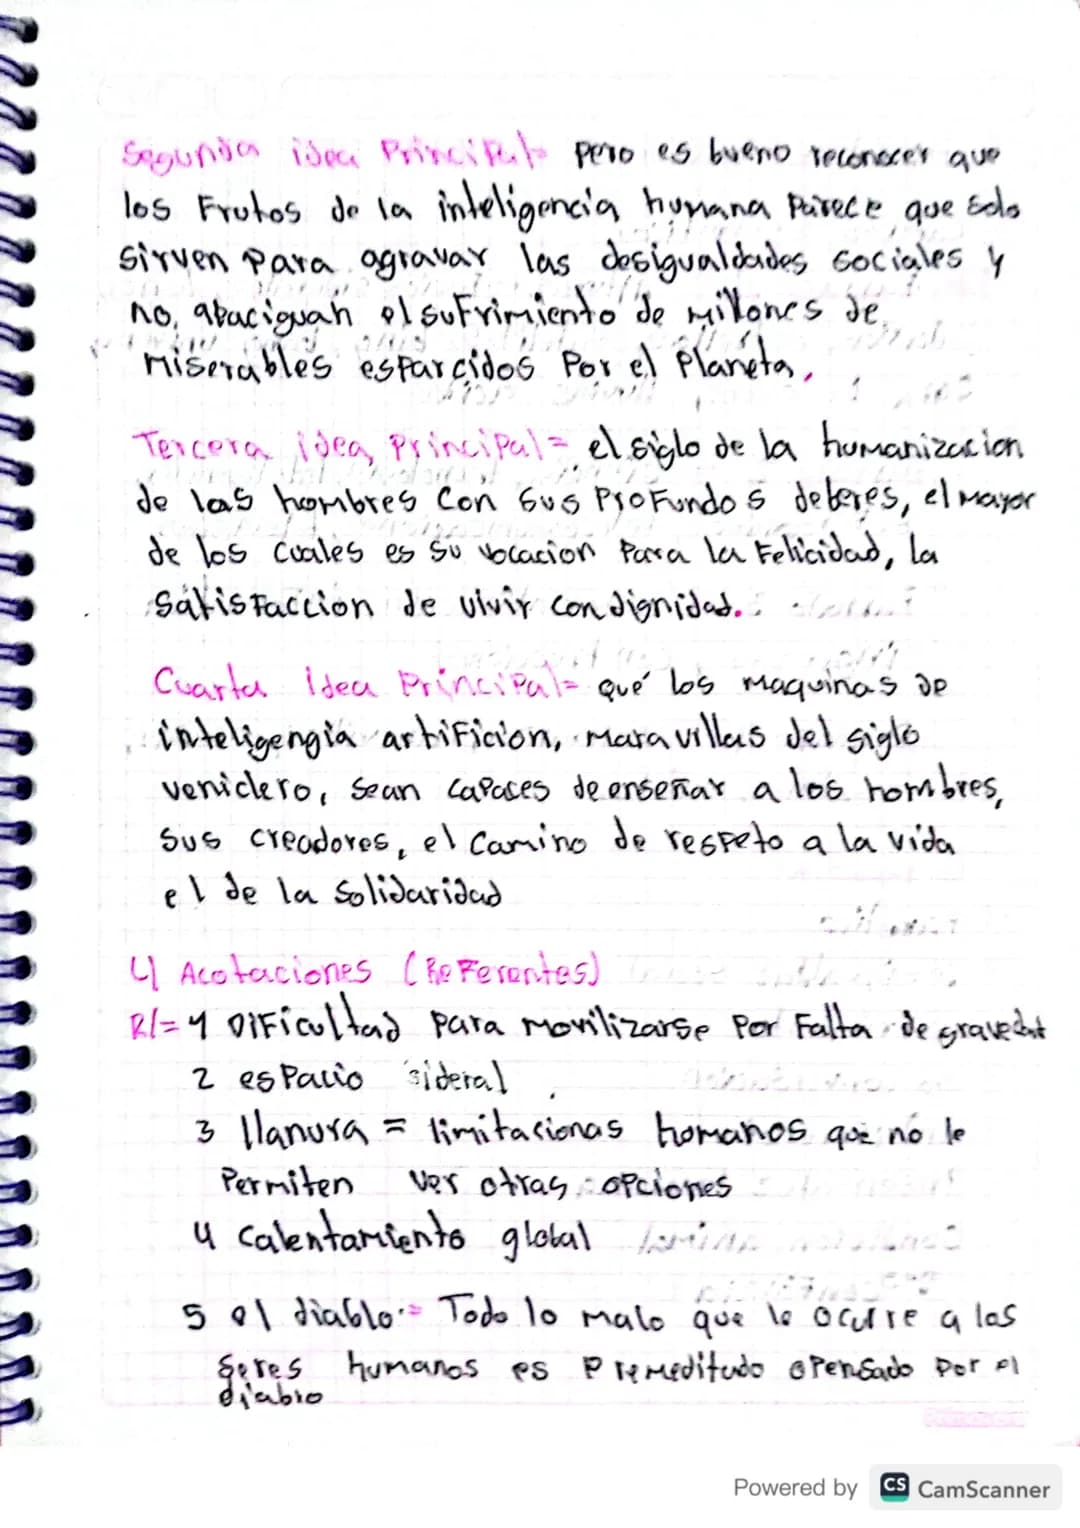 Segunda idea Principal= pero es bueno reconocer que
los Frutos de la inteligencia humana Parece que solo
sirven para agravar las desigualdades sociales y
no, abaciguan el sufrimiento de Millones de
Miserables esparcidos Por el Planeta.
Tercera idea Principal= el siglo de la humanizacion
de las hombres Con Sus ProFundos deberes, el Mayor
de los Cuales es Su vocacion Para la Felicidad, la
SatisFaccion de vivir con dignidad.
Cuarta Idea Principal= qué los Maquinas de
inteligengia artiFicion, Maravillas del siglo
veniclero, Sean Capaces de enseñar a los hombres,
Sus creadores, el Camino de respeto a la vida
el de la Solidaridad
4 Acotaciones (ReFerentes)
R/= 1 DiFicultad para Movilizarse Por Falta de gravedat
2 esPacio sideral
3 llanura = limitacionas homanos que no le
Permiten Ver otras opciones
4 Calentamiento global
5 el diablo:= Todo lo Malo que le ocurre a las
Seres humanos es Premeditado o Pensado por el
diablo
Powered by CS CamScanner